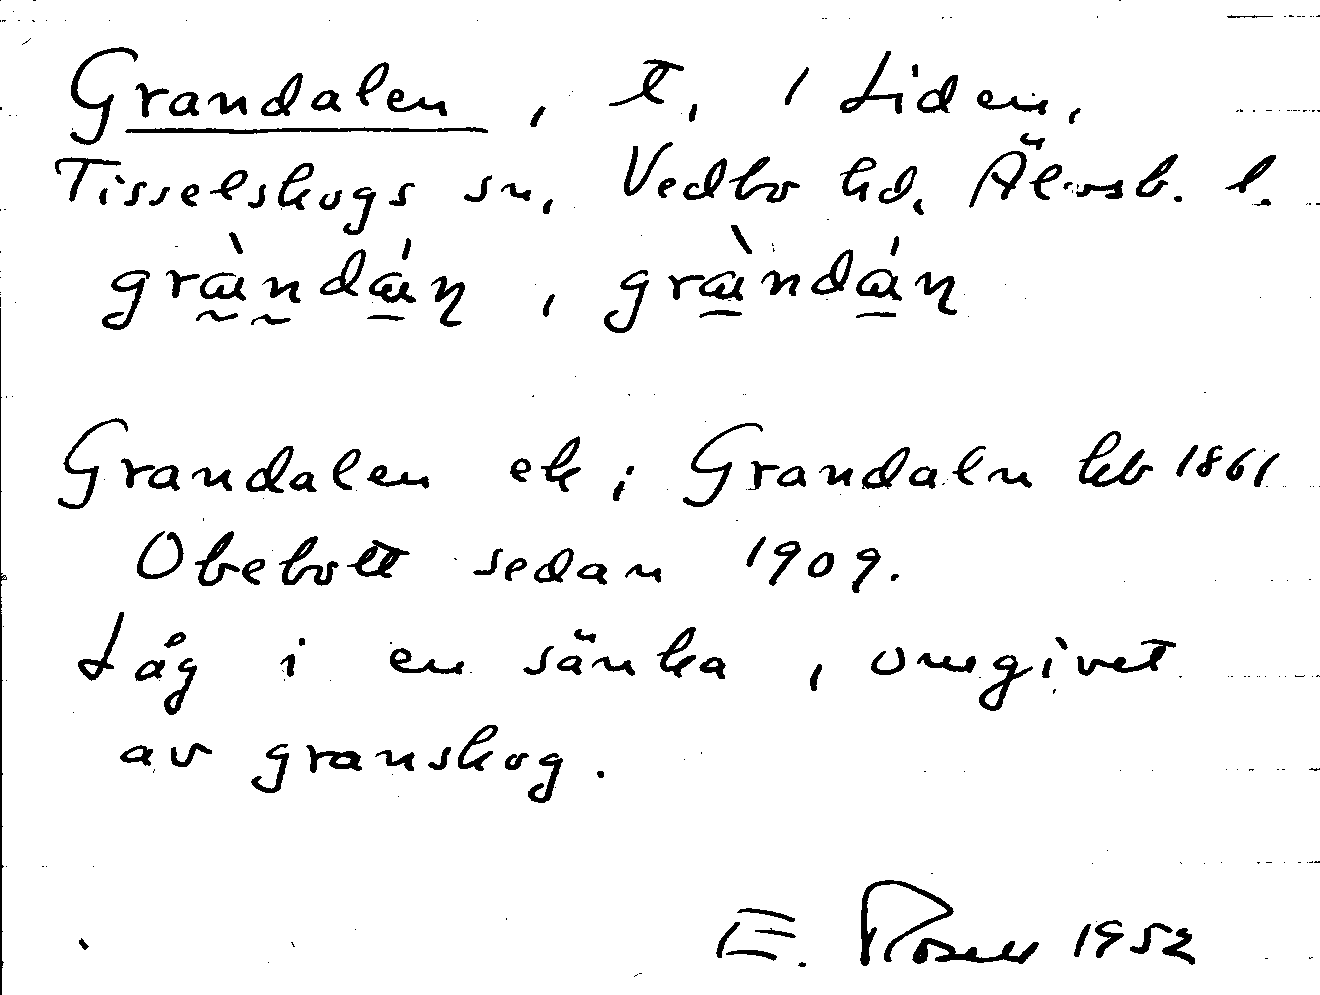 Grandalen, t. 1 Liden,
Tisselskogs sn, Vedbo hd, Älvsb. l.
gràndáṇ, gràndáṇ
Grandalen ek; Grandaln kb 1861
Obebott sedan 1909.
Låg i en sänka, omgivet
av granskog.
E. Rosell 1952